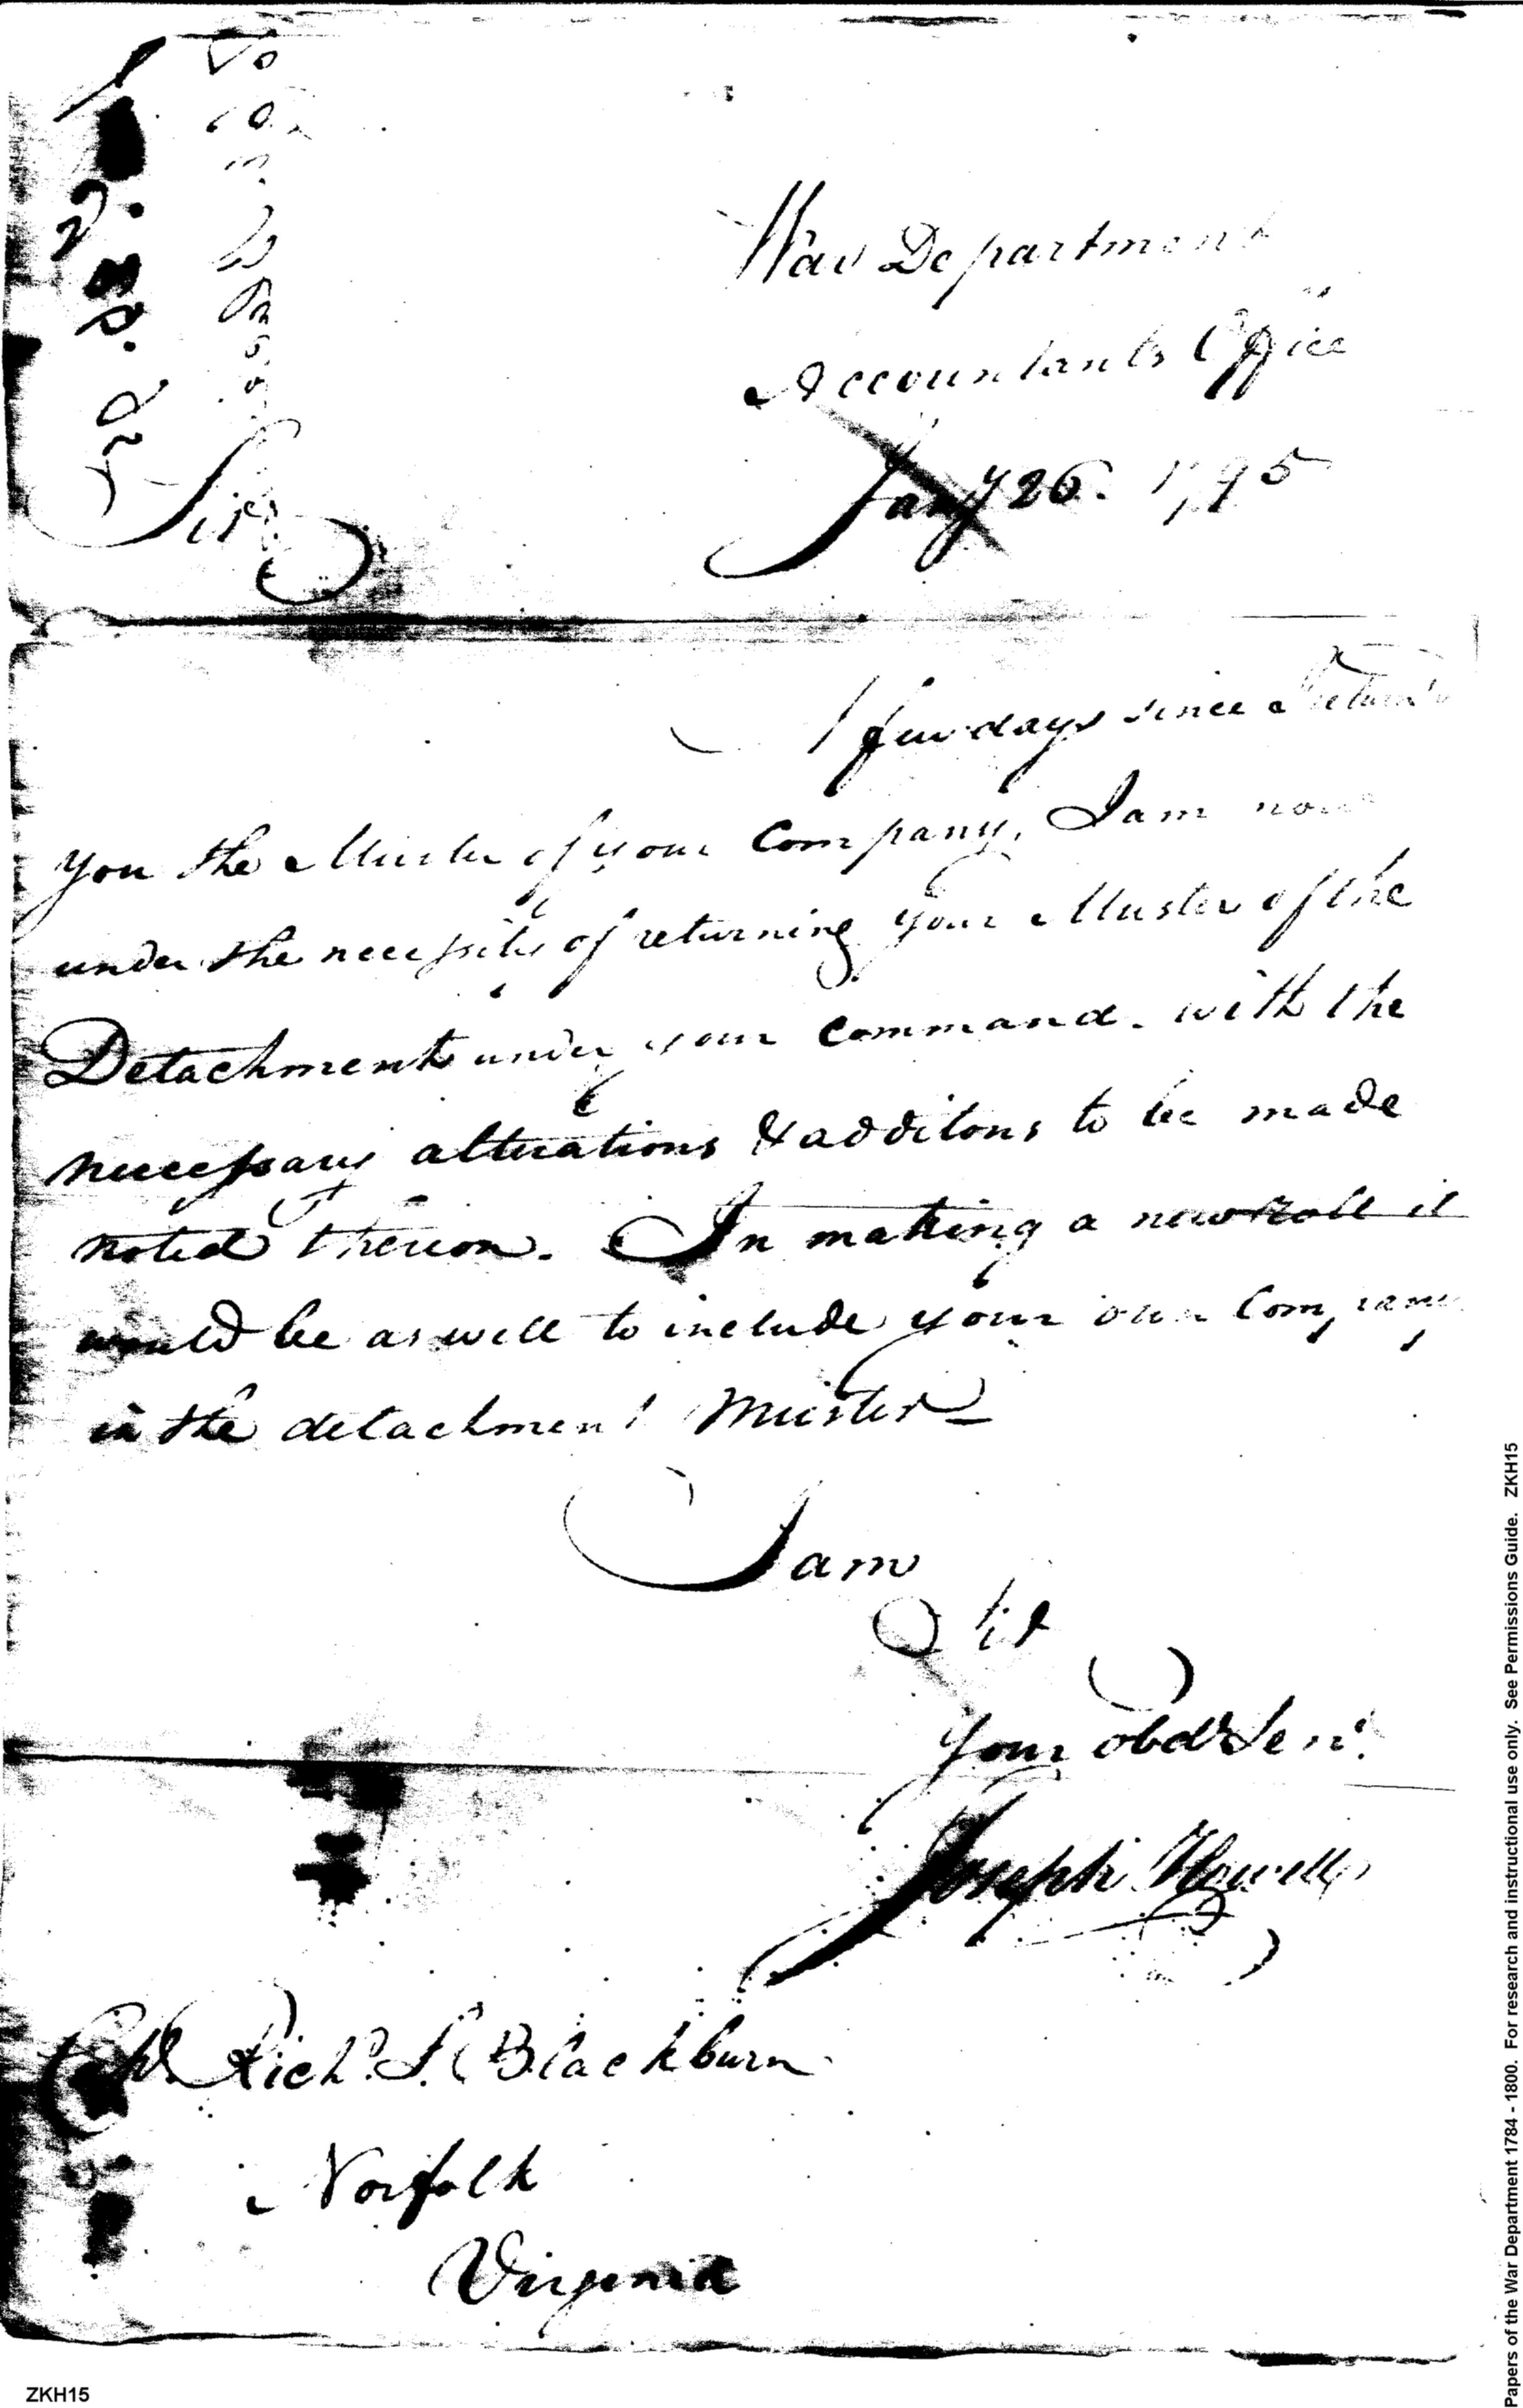 War Department
Accountants Office
Jany 26. 1795
Sir
A few days since I returned
you the Muster of your Company, I am now
under the necessity of returning your Muster of the
Detachment under your command. with the
necessary alterations & additons to be made
noted thereon. In making a new Roll it
would be as well to include your own Company
in the detachment Muster
I am
Sir
Your obdt Servt.
Joseph Howell
Capt Richd. S. Blackburn
Norfolk
Virginia
ZKH15
Papers of the War Department 1784 - 1800. For research and instructional use only. See Permissions Guide. ZKH15